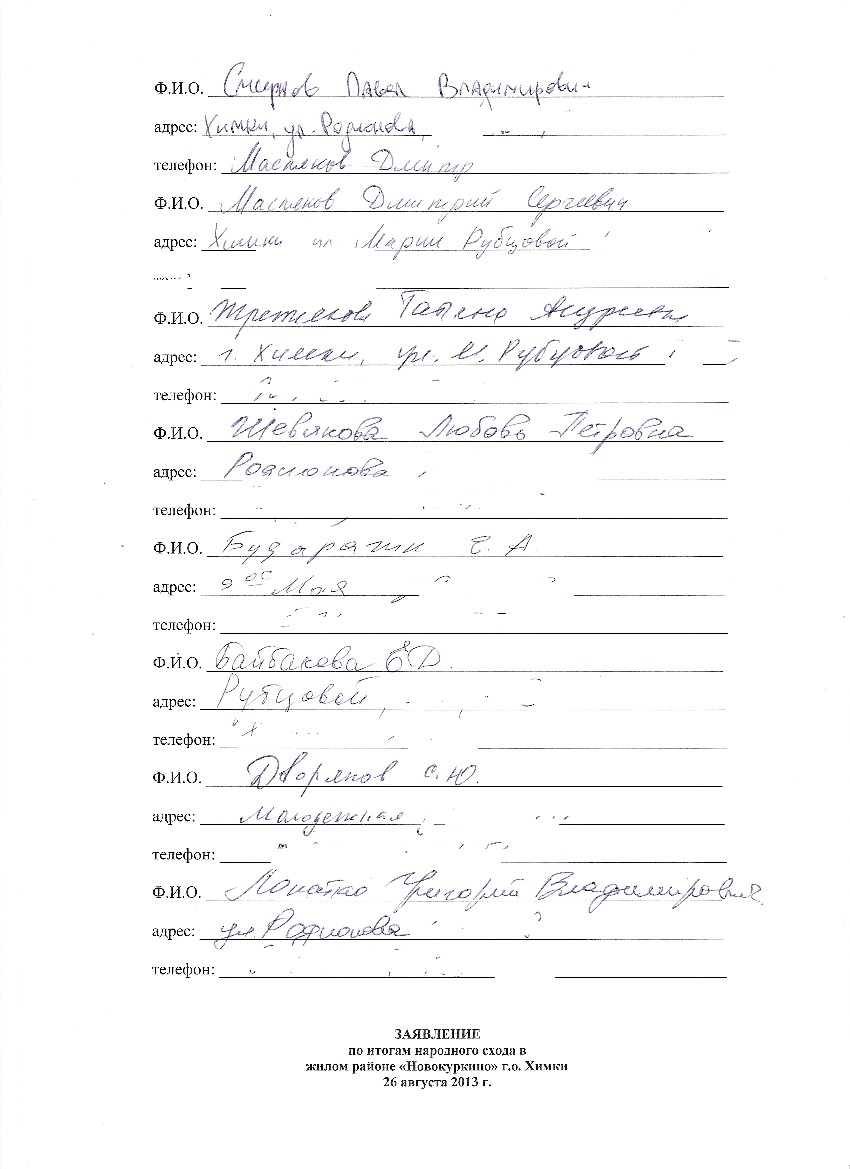 Ф.И.О. Смирнов Павел Владимирович
адрес: Химки, ул. Родионова,
телефон: Масляков Дмитр
Ф.И.О. Масляков Дмитрий Сергеевич
адрес: Химки ул. Марии Рубцовой
Ф.И.О. Третьякова Татьяна Андреевна
адрес: г. Химки, ул. М. Рубцовой
телефон:
Ф.И.О. Шевякова Любовь Петровна
адрес: Родионова
телефон:
Ф.И.О. Бударагин А
адрес: 9 ое Мая
телефон:
Ф.И.О. Байбакова Е Д.
адрес: Рубцовой,
телефон:
Ф.И.О. Дворяков С.Ю.
адрес: Молодежная
телефон:
Ф.И.О. Лопатко Григорий Владимирович
адрес: ул. Родионова
телефон:
ЗАЯВЛЕНИЕ
по итогам народного схода в
жилом районе «Новокуркино» г.о. Химки
26 августа 2013 г.